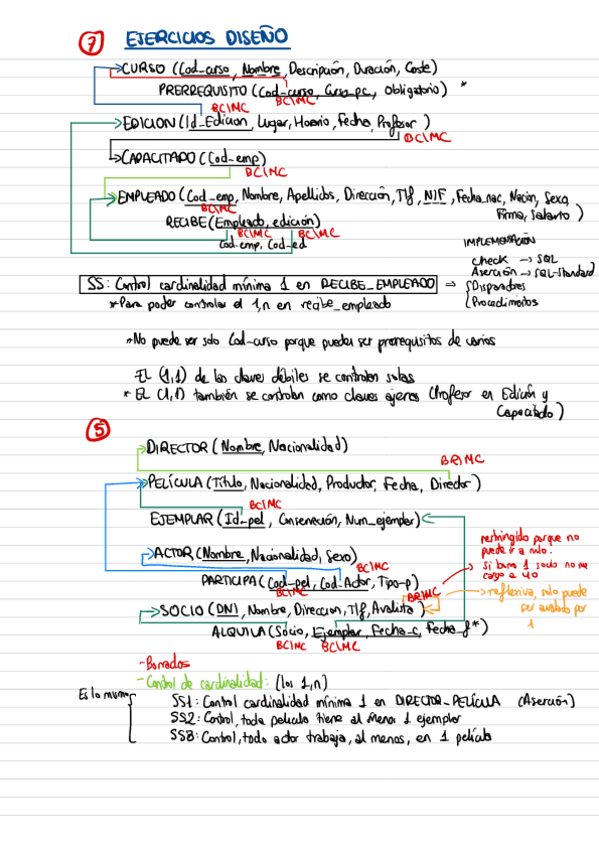 7 EJERCICIOS DISEÑO
CURSO (Cod_curso, Nombre, Descripción, Duración, Coste)
PRERREQUISITO (Cod_curso, Curso_pc, Obligatorio) *
BC/MC BC/MC
EDICION (Id_Edicion, Lugar, Horario, Fecha, Profesor)
BC/MC
CAPACITADO (Cod_emp)
BC/MC
EMPLEADO (Cod_emp, Nombre, Apellidos, Dirección, Tlf, NIF, Fecha_nac, Nación, Sexo,
Firma, Salario)
BC/MC
RECIBE (Empleado, edición)
BC/MC BC/MC
Cod_emp, Cod_ed
IMPLEMENTACIÓN
Check → SQL
Aserción → SQL-Standard
SS: Control cardinalidad mínima 1 en RECIBE_EMPLEADO ⇒ Disparadores
*Para poder controlar el 1,n en recibe_empleado Procedimientos
*No puede ser solo Cod_curso porque puedes ser prerequisitos de varios
EL (1,1) de las claves débiles se controlan solas
* EL (1,1) también se controlan como claves ajenas (Profesor en Edición y
Capacitado)
5
DIRECTOR (Nombre, Nacionalidad)
BR/MC
PELÍCULA (Título, Nacionalidad, Productor, Fecha, Director)
BC/MC
EJEMPLAR (Id_pel, Conservación, Num_ejemplar)
ACTOR (Nombre, Nacionalidad, Sexo)
BC/MC
PARTICIPA (Cod_pel, Cod_Actor, Tipo_p)
BC/MC
BR/MC
restringido porque no
puede ir a nulo.
Si borro 1 socio no me
cargo a 40
SOCIO (DNI, Nombre, Direccion, Tlf, Avalita)
reflexiva, solo puede
ser avalado por
1
ALQUILA (Socio, Ejemplar, Fecha_c, Fecha_f*)
BC/MC BC/MC
-Borrados
-Control de cardinalidad: (los 1,n)
Es lo mismo
SS1: Control cardinalidad mínima 1 en DIRECTOR_PELÍCULA (Aserción)
SS2: Control, toda película tiene al menos 1 ejemplar
SS3: Control, todo actor trabaja, al menos, en 1 película